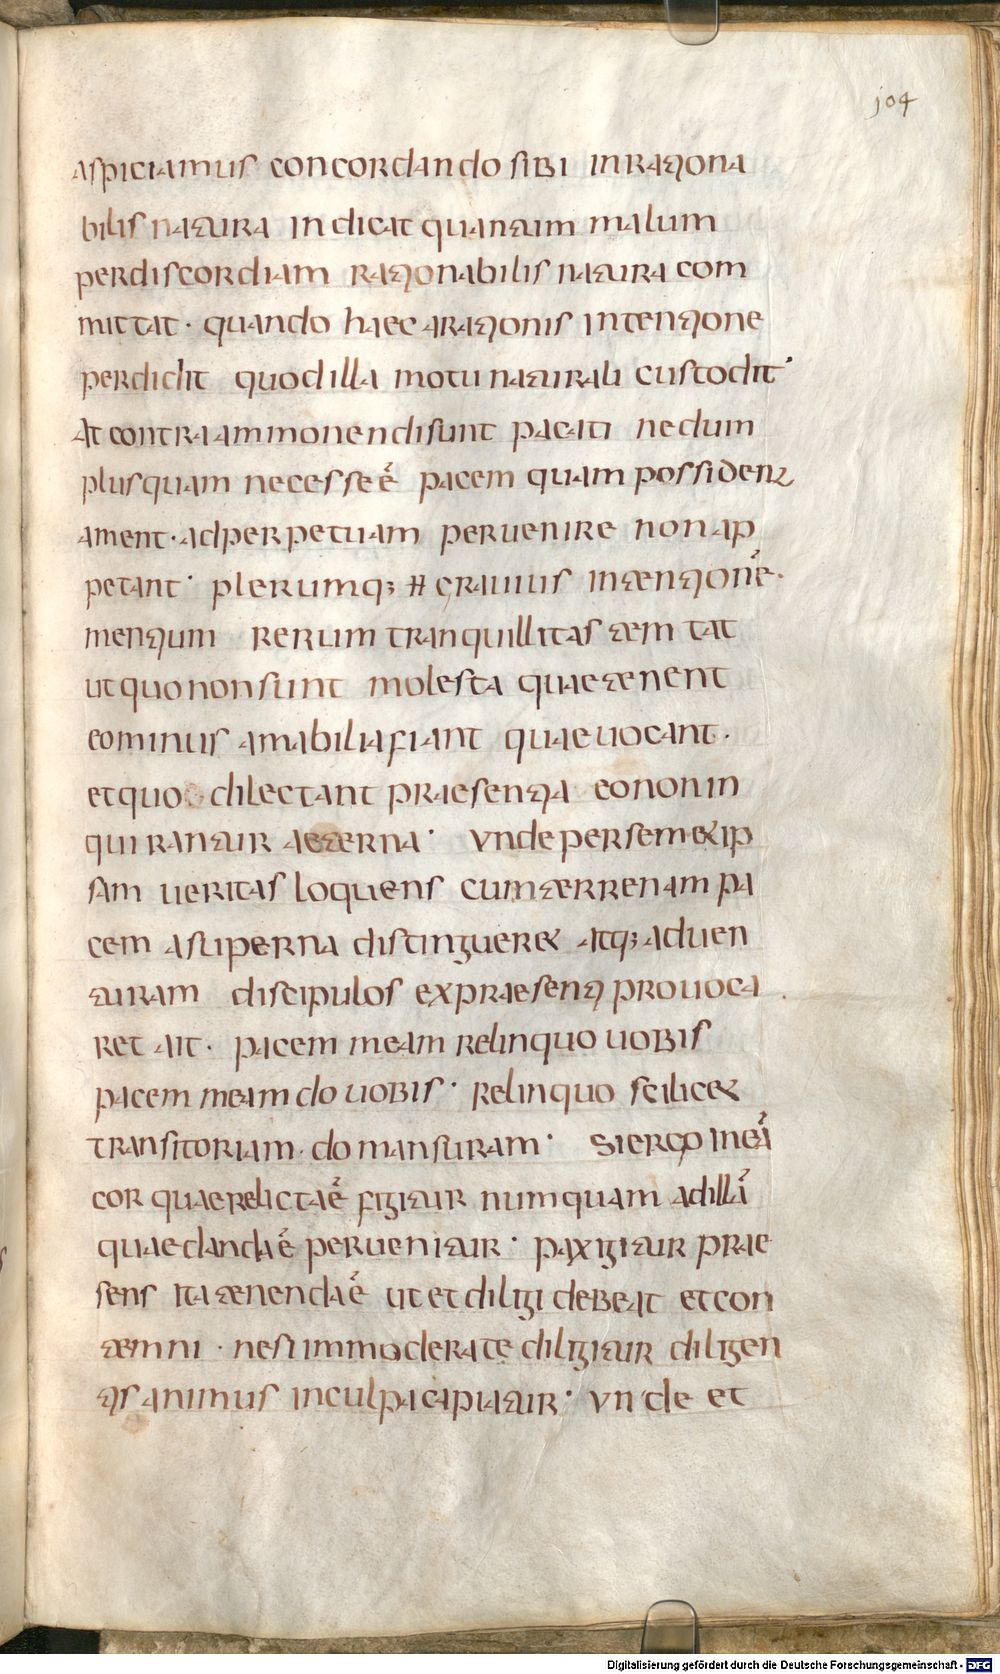 104
aspiciamus concordando sibi inrationa
bilis natura indicat quantum malum
perdiscordiam rationabilis natura com
mittat · quando haec arationis intentione
perdidit quod illa motu naturali custodit·
At contra ammonendi sunt pacati nedum
plusquam necesse ē pacem quam possident
ament · ad perpetuam peruenire non ap
petant · plerumq; ħ grauius intentionē·
mentium rerum tranquillitas temtat
ut quo non sunt molesta quae tenent
eo minus amabilia fiant quae uocant·
et quo dilectant praesentia eo non in
quirantur aeterna · Vnde per semet ip
sam ueritas loquens cum terrenam pa
cem a superna distinguer& atq; ad uen
turam discipulos ex praesenti prouoca
ret ait · pacem meam relinquo uobis
pacem meam do uobis · Relinquo scilic&
transitoriam · do mansuram · Si ergo in eā
cor quae relicta ē figitur numquam ad illā
quae danda ē peruenitur · pax igitur prae
sens ita tenenda ē ut et diligi debeat et con
temni · ne si immoderate diligitur diligen
tis animus in culpa capiatur · Vnde et
Digitalisierung gefördert durch die Deutsche Forschungsgemeinschaft - DFG